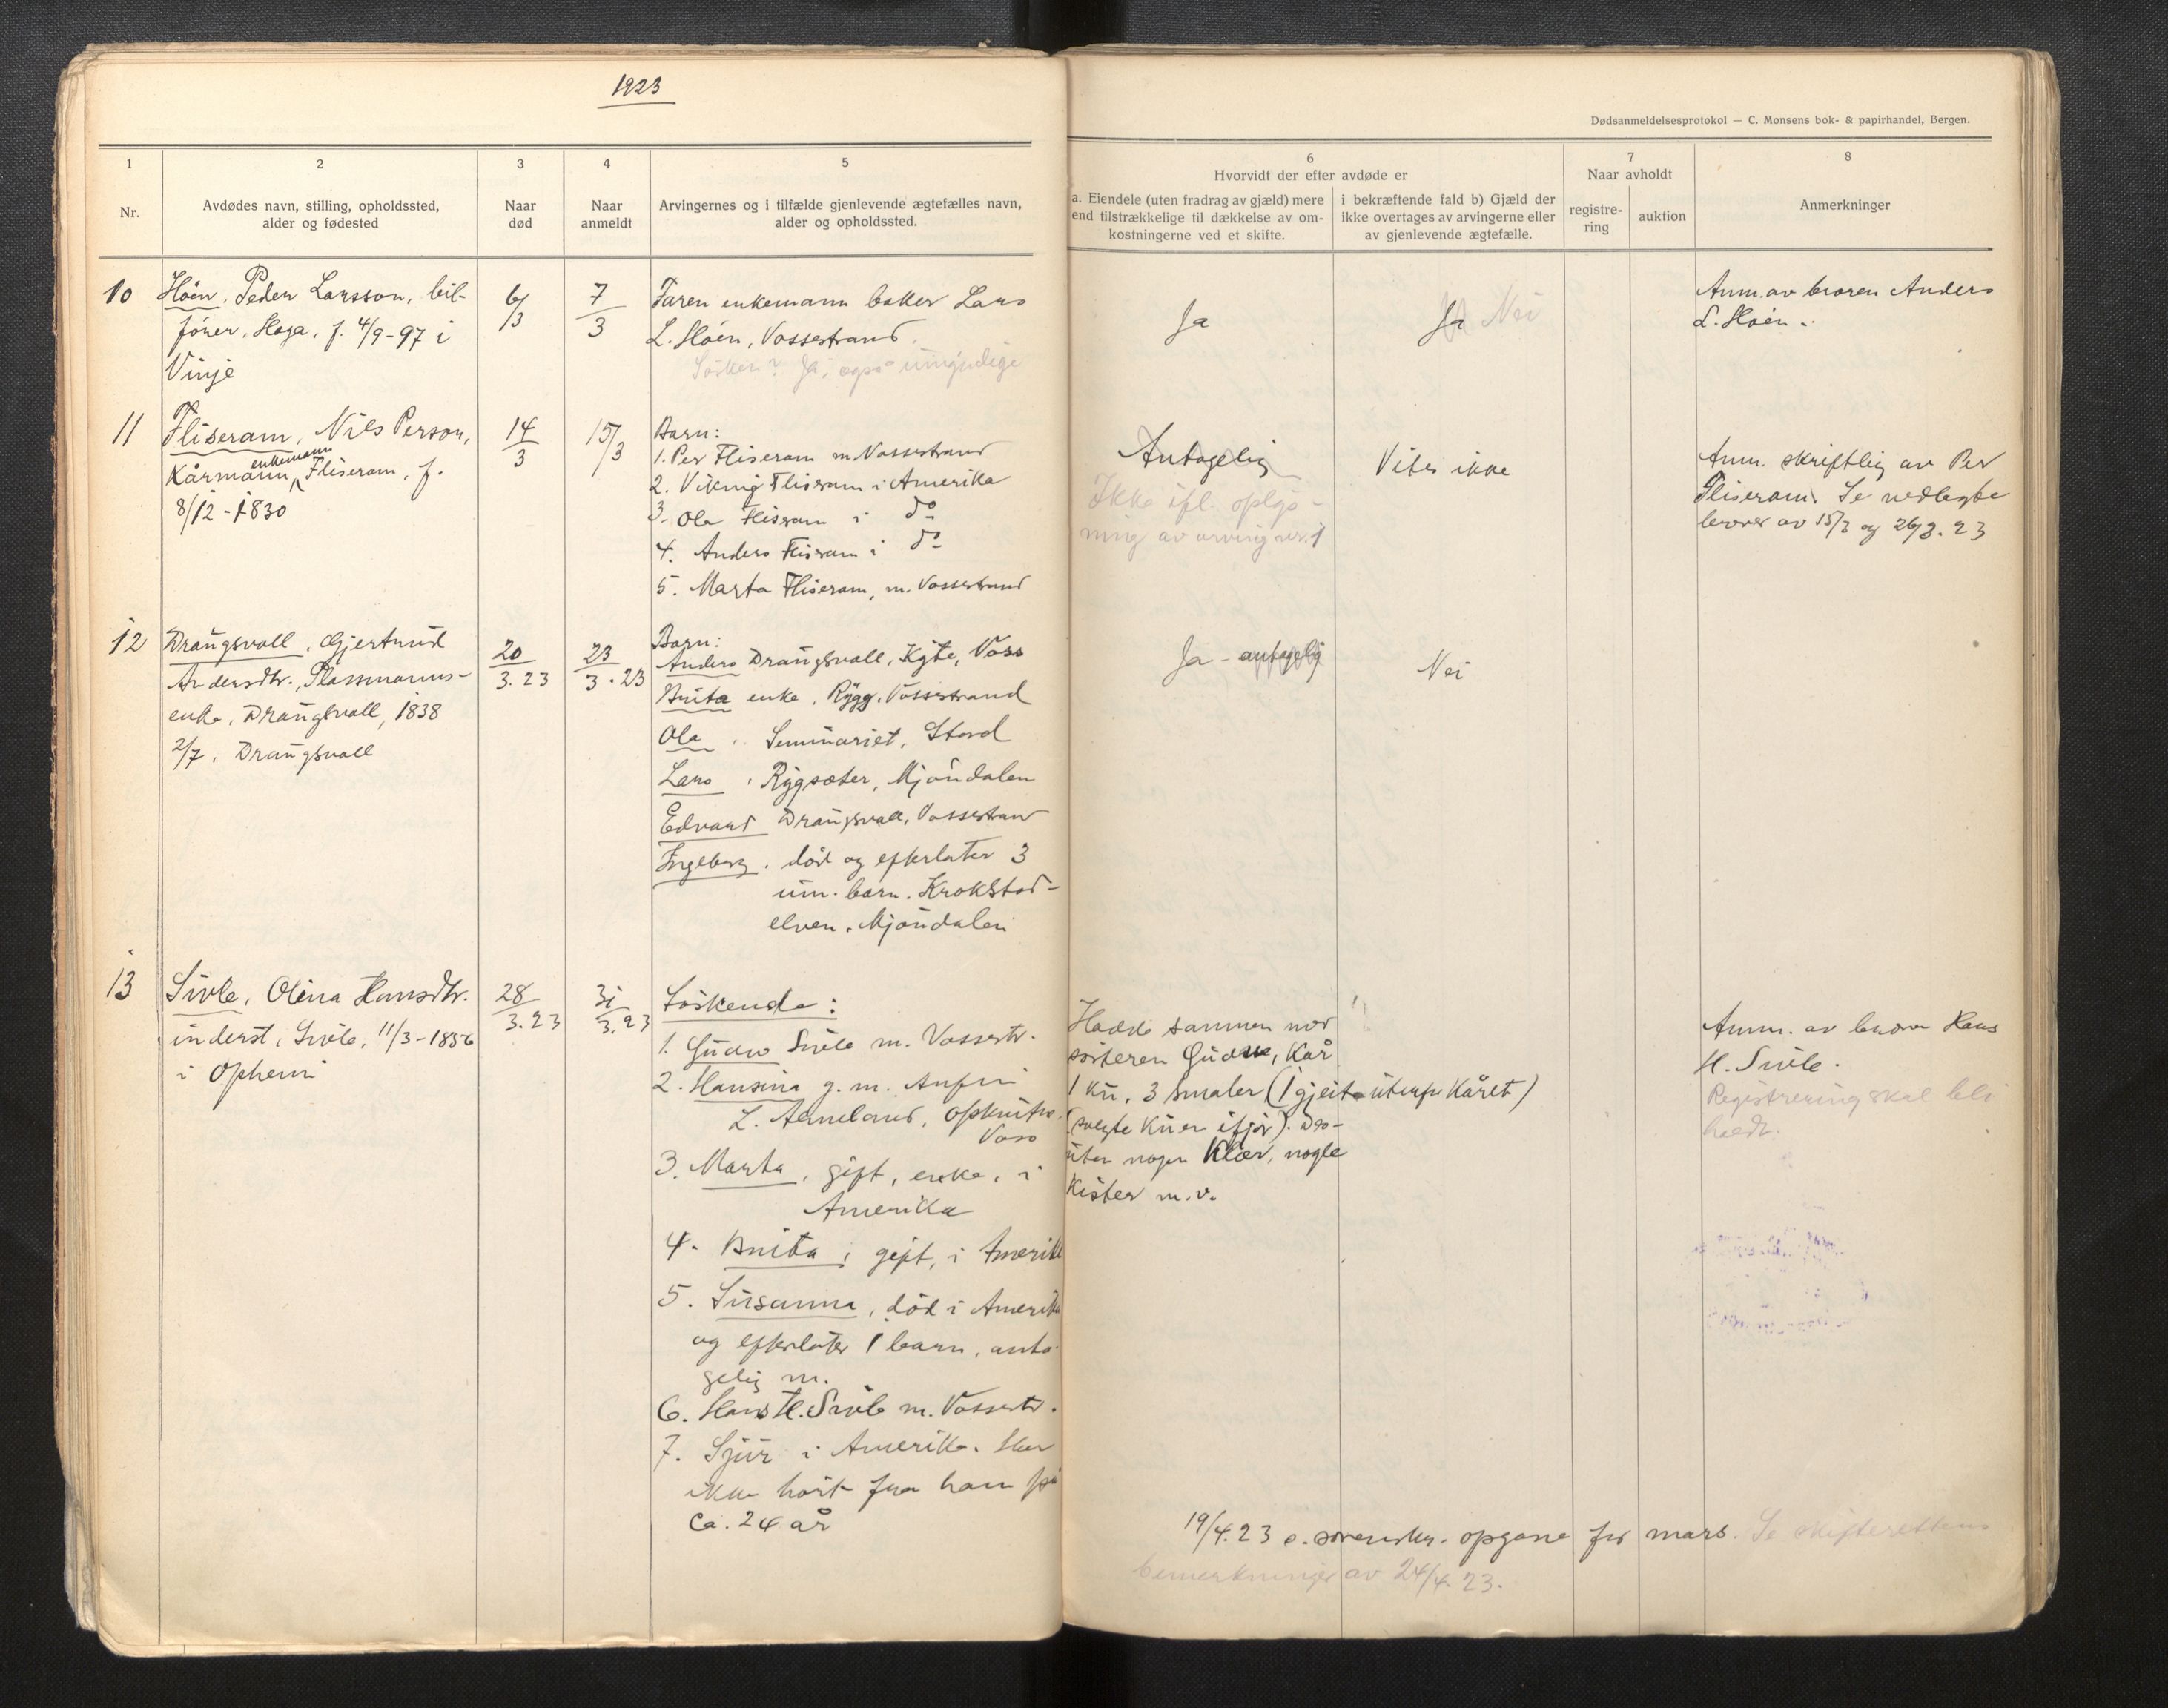 1923
Dødsanmeldelsesprotokol — C. Monsens bok- & papirhandel, Bergen.
1
Nr.
2
Avdødes navn, stilling, opholdssted,
alder og fødested
3
Naar
død
4
Naar
anmeldt
5
Arvingernes og i tilfælde gjenlevende ægtefælles navn,
alder og opholdssted.
6
Hvorvidt der efter avdøde er
a. Eiendele (uten fradrag av gjæld) mere
end tilstrækkelige til dækkelse av om-
kostningerne ved et skifte.
i bekræftende fald b) Gjæld der
ikke overtages av arvingerne eller
av gjenlevende ægtefælle.
7
Naar avholdt
registre-
ring
auktion
8
Anmerkninger
10
Hoen, Peder Larsson, bil-
fører, Haga, f. 4/9-97 i
Vinje
6/3
7/3
Faren enkemann baker Lars
L. Hoen, Vossestrand.
Søsken? Ja, også umyndige
Ja
Ja Nei
Anm. av broren Anders
L. Hoen.
11
Fliseram, Nils Person,
enkemann
Kårmann, Fliseram, f.
8/12-1830
14/3
15/3
Barn:
1. Per Fliseram m. Vossestrand
2. Viking Fliseram i Amerika
3. Ola Fliseram i do
4. Anders Fliseram i do
5. Marta Fliseram, m. Vossestrand
Antagelig
Ikke ifl. oplys-
ning av arving nr. 1
Vites ikke
Anm. skriftlig av Per
Fliseram. Se vedlagte
brever av 15/3 og 26/3. 23
12
Draugsvoll, Gjertrud
Andersdtr., Plassmanns-
enke, Draugsvoll, 1838
2/7, Draugsvoll
20/3.23
23/3.23
Barn:
Anders Draugsvoll, Kyte, Voss
Brita enke, Rygg, Vossestrand
Ola, Seminariet, Stord
Lars, Rygsæter, Mjøndalen
Edvard Draugsvoll, Vossestrand
Ingeborg. død og efterlater 3
um. barn. Krokstad-
elven, Mjøndalen
Ja - antagelig
Nei
13
Sivle, Olina Hansdtr.
inderst, Sivle, 11/3-1856
i Opheim
28/3.23
31/3.23
Søskende:
1. Gudve Sivle m. Vossestr.
2. Hansina g. m.
L.
Voss
3. Marta, gift, enke, i
Amerika
4. Brita, gift, i Amerika
5. Susanna, død i Amerika
og efterlater 1 barn, anta-
gelig m.
6. Hans H. Sivle m. Vossestr.
7. Sjur i Amerika. Har
ikke hørt fra ham på
ca. 24 år
Hadde sammen med
søsteren Gudve, Kår
1 ku, 3 smaler (1 gjeit utenfor Kåret)
(solgte Kuen ifjor). Des-
uten nogen Klær, nogle
Kister m.v.
Anm. av broren Hans
H. Sivle.
Registrering skal bli
holdt.
19/4.23 s. sorenskr. opgave for mars. Se skifterettens
bemerkninger av 24/4. 23.